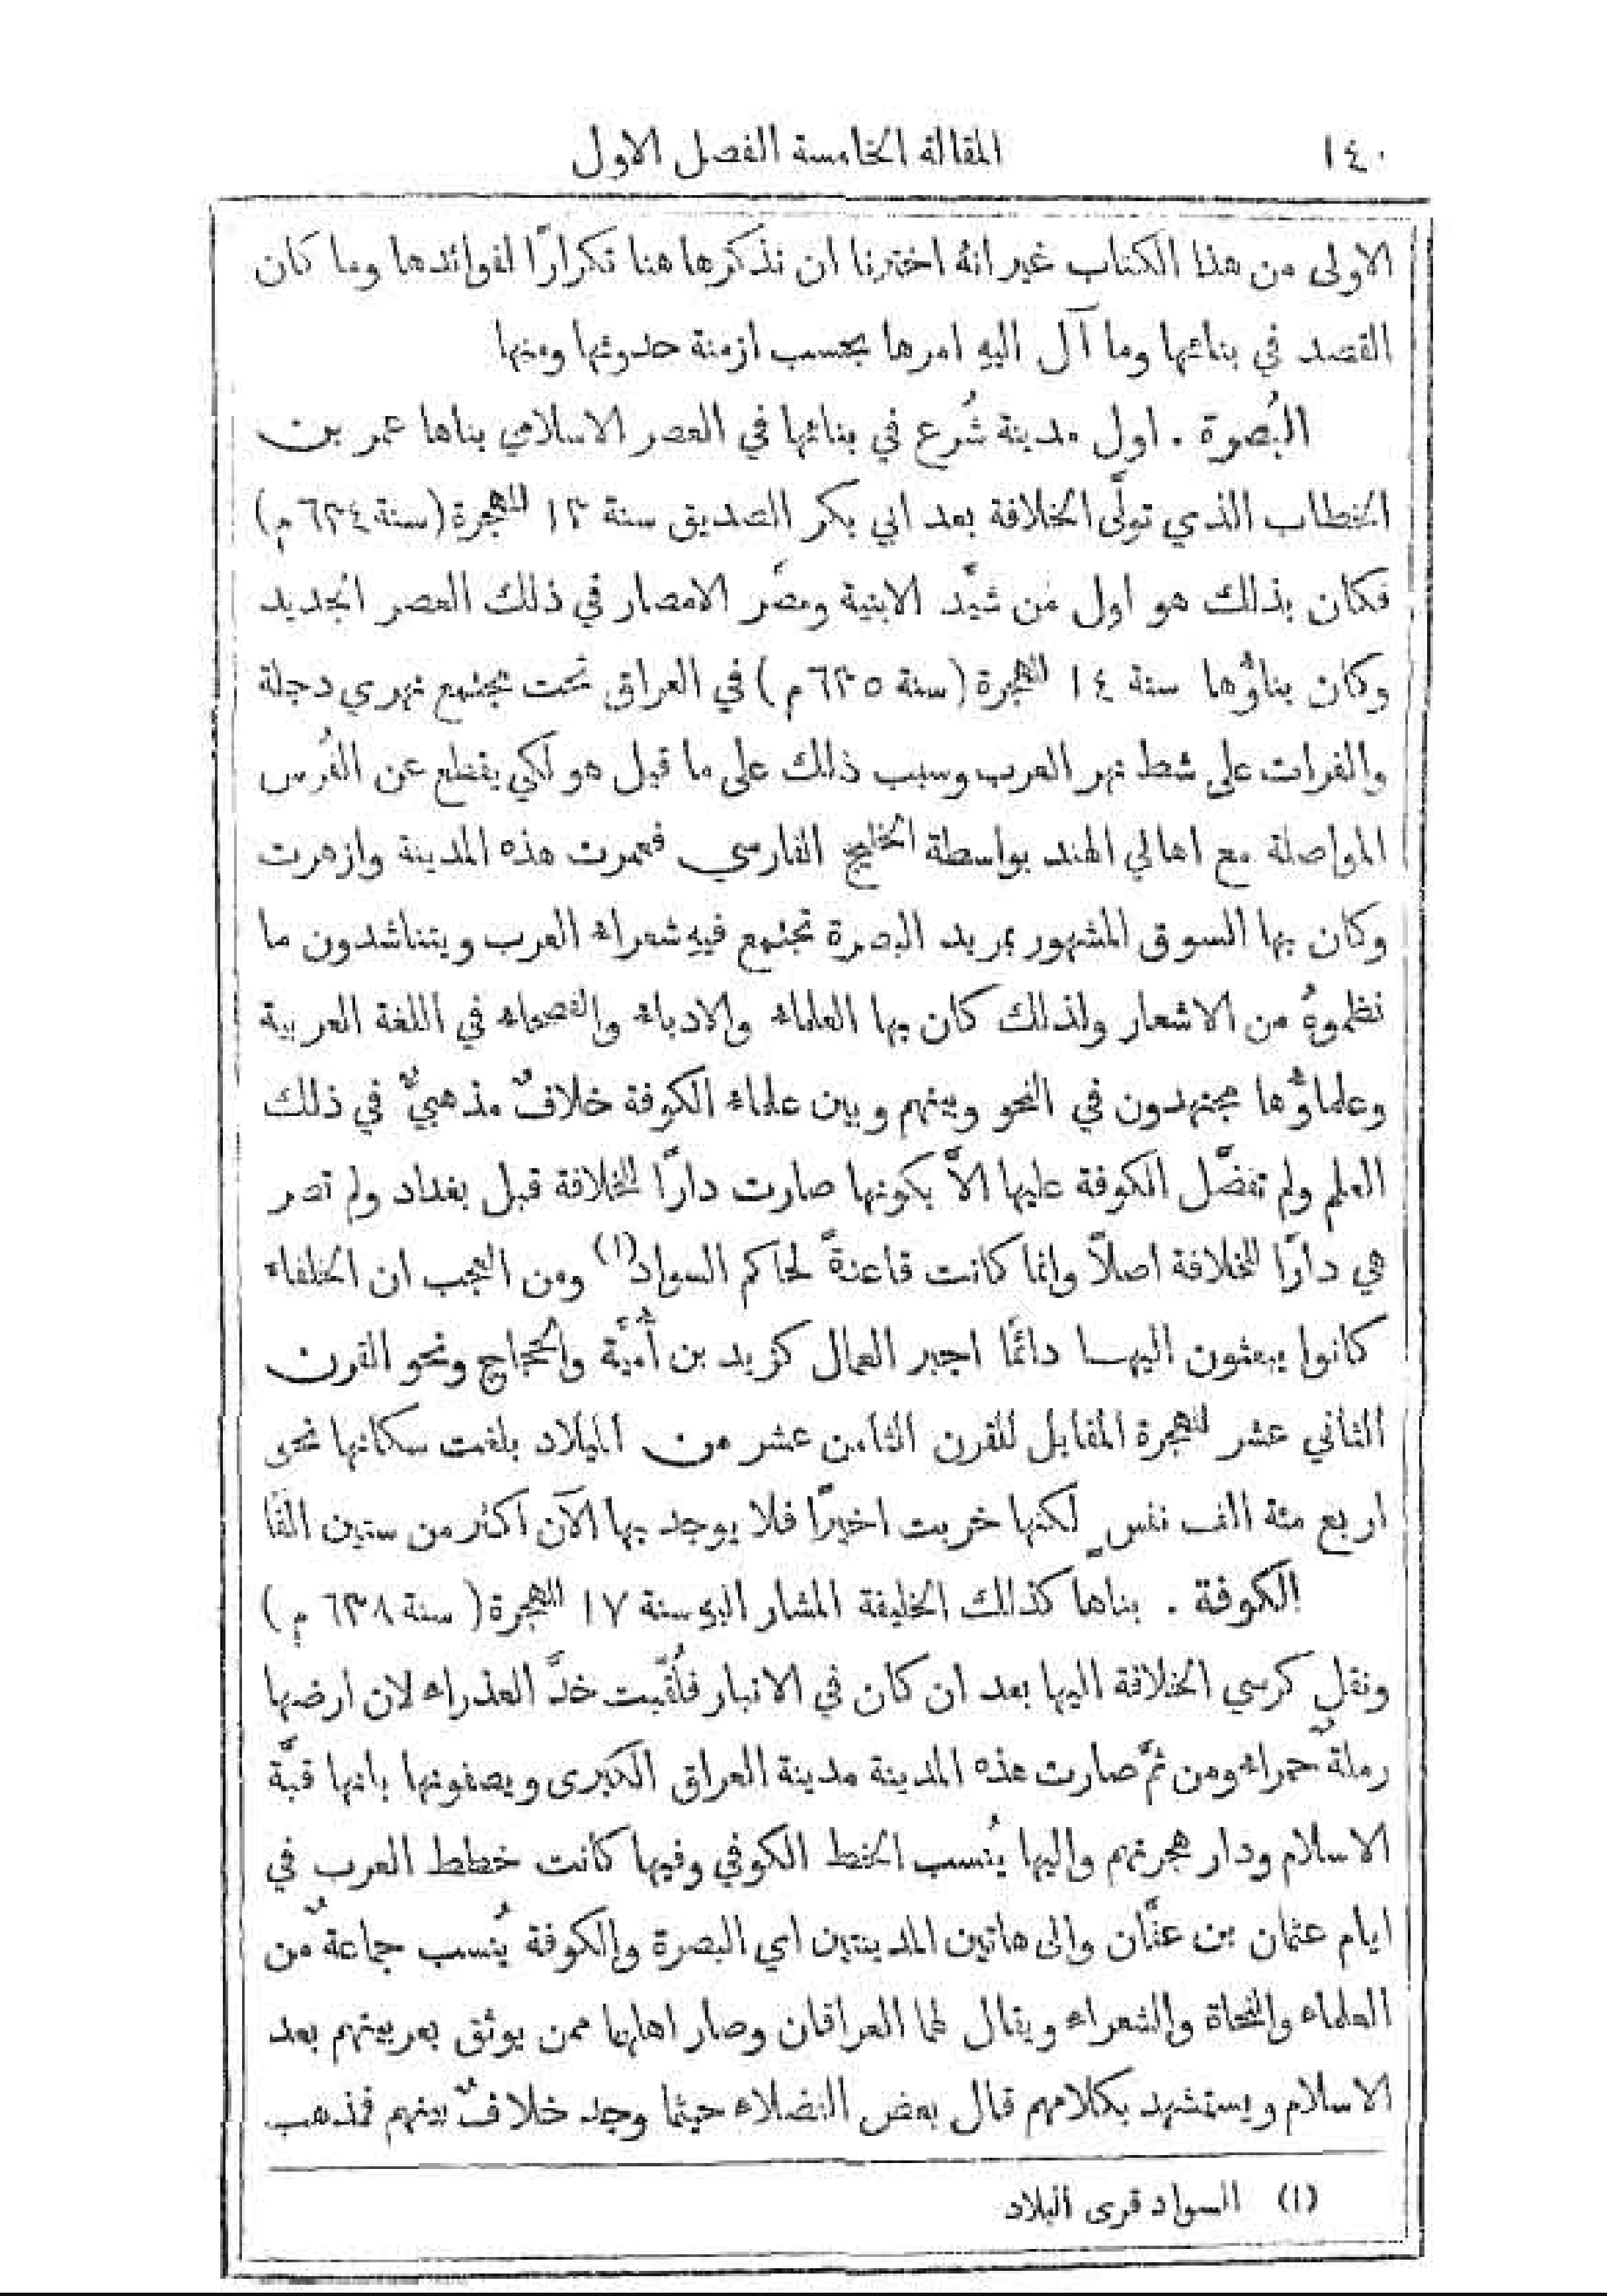 ١٤٠ المقالة الخامسة الفصل الاول
الاولى من هذا الكتاب غير انهُ اخترنا ان نذكرها هنا تكرارًا لفوائدها وما كان
القصد في بنائها وما آل اليهِ امرها بحسب ازمنة حدوثها ومنها
البُصرة . اول مدينة شُرع في بنائها في العصر الاسلامي بناها عمر بن
الخطاب الذي تولَّى الخلافة بعد ابي بكر الصديق سنة ١٣ للهجرة (سنة ٦٣٤ م)
فكان بذلك هو اول مَن شيَّد الابنية ومصَّر الامصار في ذلك العصر الجديد
وكان بناؤُها سنة ١٤ للهجرة (سنة ٦٣٥ م) في العراق تحت مجتمع نهري دجلة
والفرات على شط نهر العرب وسبب ذلك على ما قيل هو لكي يقطع عن الفُرس
المواصلة مع اهالي الهند بواسطة الخليج الفارسي فعمرت هذه المدينة وازهرت
وكان بها السوق المشهور بمربد البصرة تجتمع فيهِ شعراء العرب ويتناشدون ما
نظموهُ من الاشعار ولذلك كان بها العلماء والادباء والفصحاء في اللغة العربية
وعلماؤُها مجتهدون في النحو وبينهم وبين علماء الكوفة خلافٌ مذهبيٌّ في ذلك
العلم ولم تفضَّل الكوفة عليها الاَّ بكونها صارت دارًا للخلافة قبل بغداد ولم تصر
هي دارًا للخلافة اصلاً وانما كانت قاعدةً لحاكم السواد(١) ومن العجب ان الخلفاء
كانوا يبعثون اليها دائمًا اجبر العمال كزيد بن أُميَّة والحجاج ونحو القرن
الثاني عشر للهجرة المقابل للقرن الثامن عشر من الميلاد بلغت سكانها نحو
اربع مئة الف نفس لكنها خربت اخيرًا فلا يوجد بها الآن اكثر من ستين الفًا
الكوفة . بناها كذلك الخليفة المشار اليهِ سنة ١٧ للهجرة (سنة ٦٣٨ م)
ونقل كرسي الخلافة اليها بعد ان كان في الانبار فلُقِّبت خدَّ العذراء لان ارضها
رملةٌ حمراء ومن ثمَّ صارت هذه المدينة مدينة العراق الكبرى ويصفونها بانها قبَّة
الاسلام ودار هجرتهم واليها يُنسب الخط الكوفي وفيها كانت خطط العرب في
ايام عثمان بن عفَّان والى هاتين المدينتين اي البصرة والكوفة يُنسب جماعةٌ من
العلماء والنحاة والشعراء ويقال لهما العراقان وصار اهلهما ممن يوثق بعربيتهم بعد
الاسلام ويستشهد بكلامهم قال بعض الفضلاء حيثما وجد خلافٌ بينهم فمذهب
(١) السواد قرى البلاد